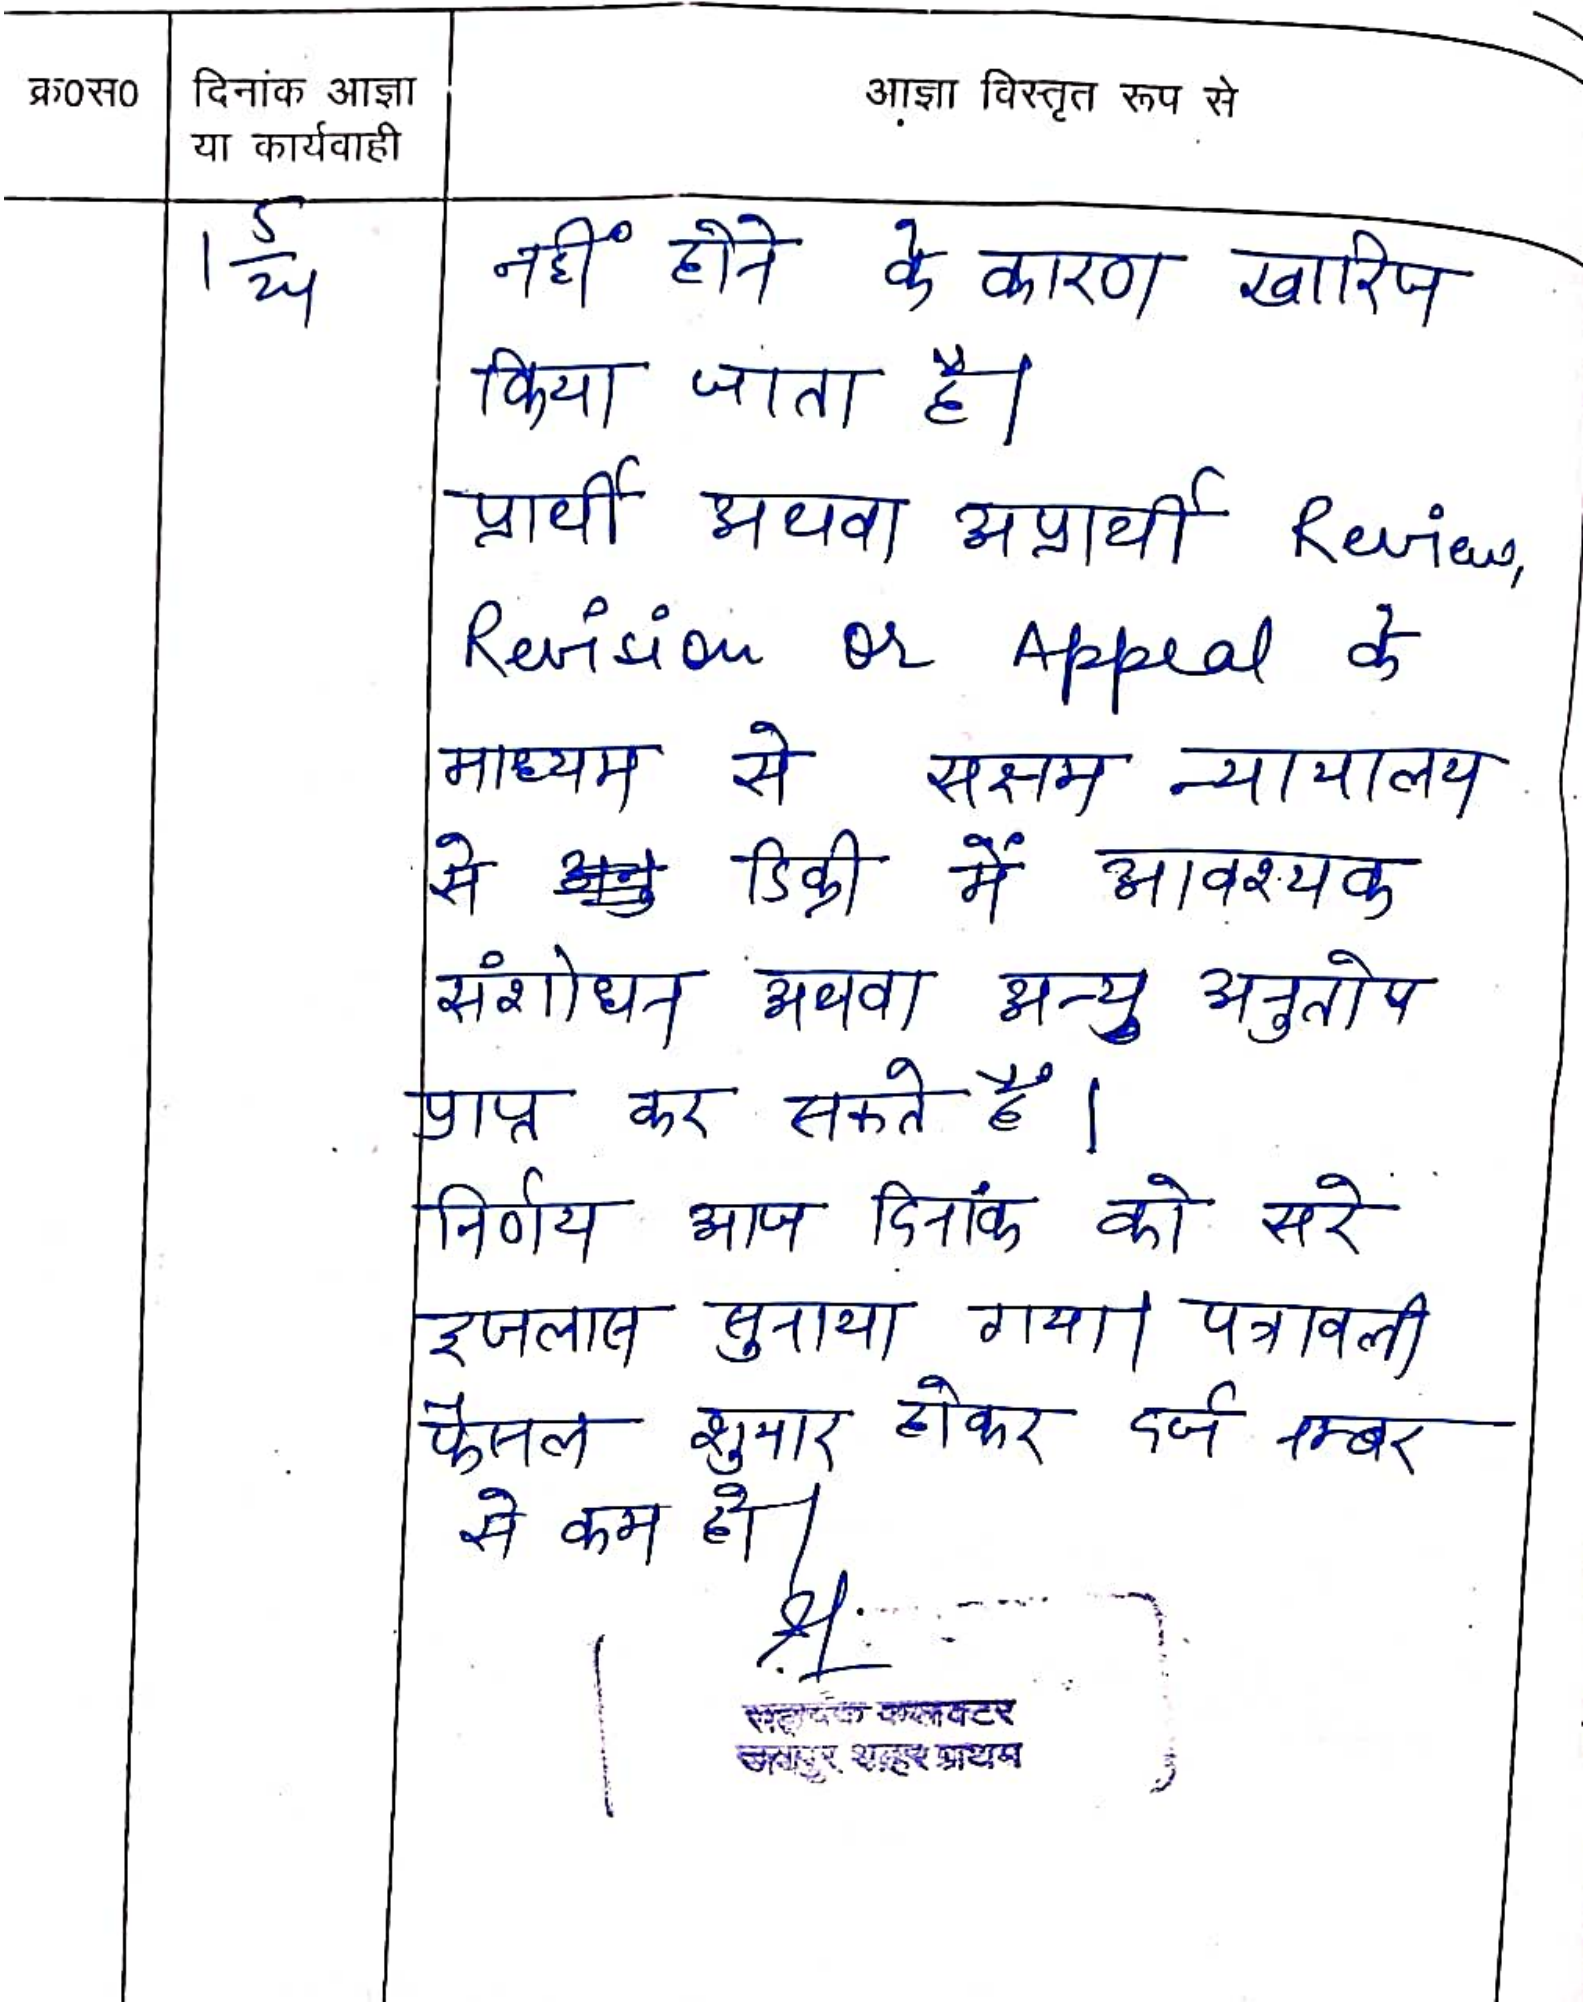 क्र०स०
दिनांक आज्ञा
या कार्यवाही
आज्ञा विस्तृत रूप से
नहीं होने के कारण खारिज
किया जाता है।
प्रार्थी अथवा अप्रार्थी Review,
Revision or Appeal के
माध्यम से सक्षम न्यायालय
से डिक्री में आवश्यक
संशोधन अथवा अन्य अनुतोष
प्राप्त कर सकते हैं।
निर्णय आज दिनांक को सरे
इजलास सुनाया गया। पत्रावली
फैसल शुमार होकर दर्ज नम्बर
से कम हो।
सहायक कलक्टर
जयपुर शहर प्रथम